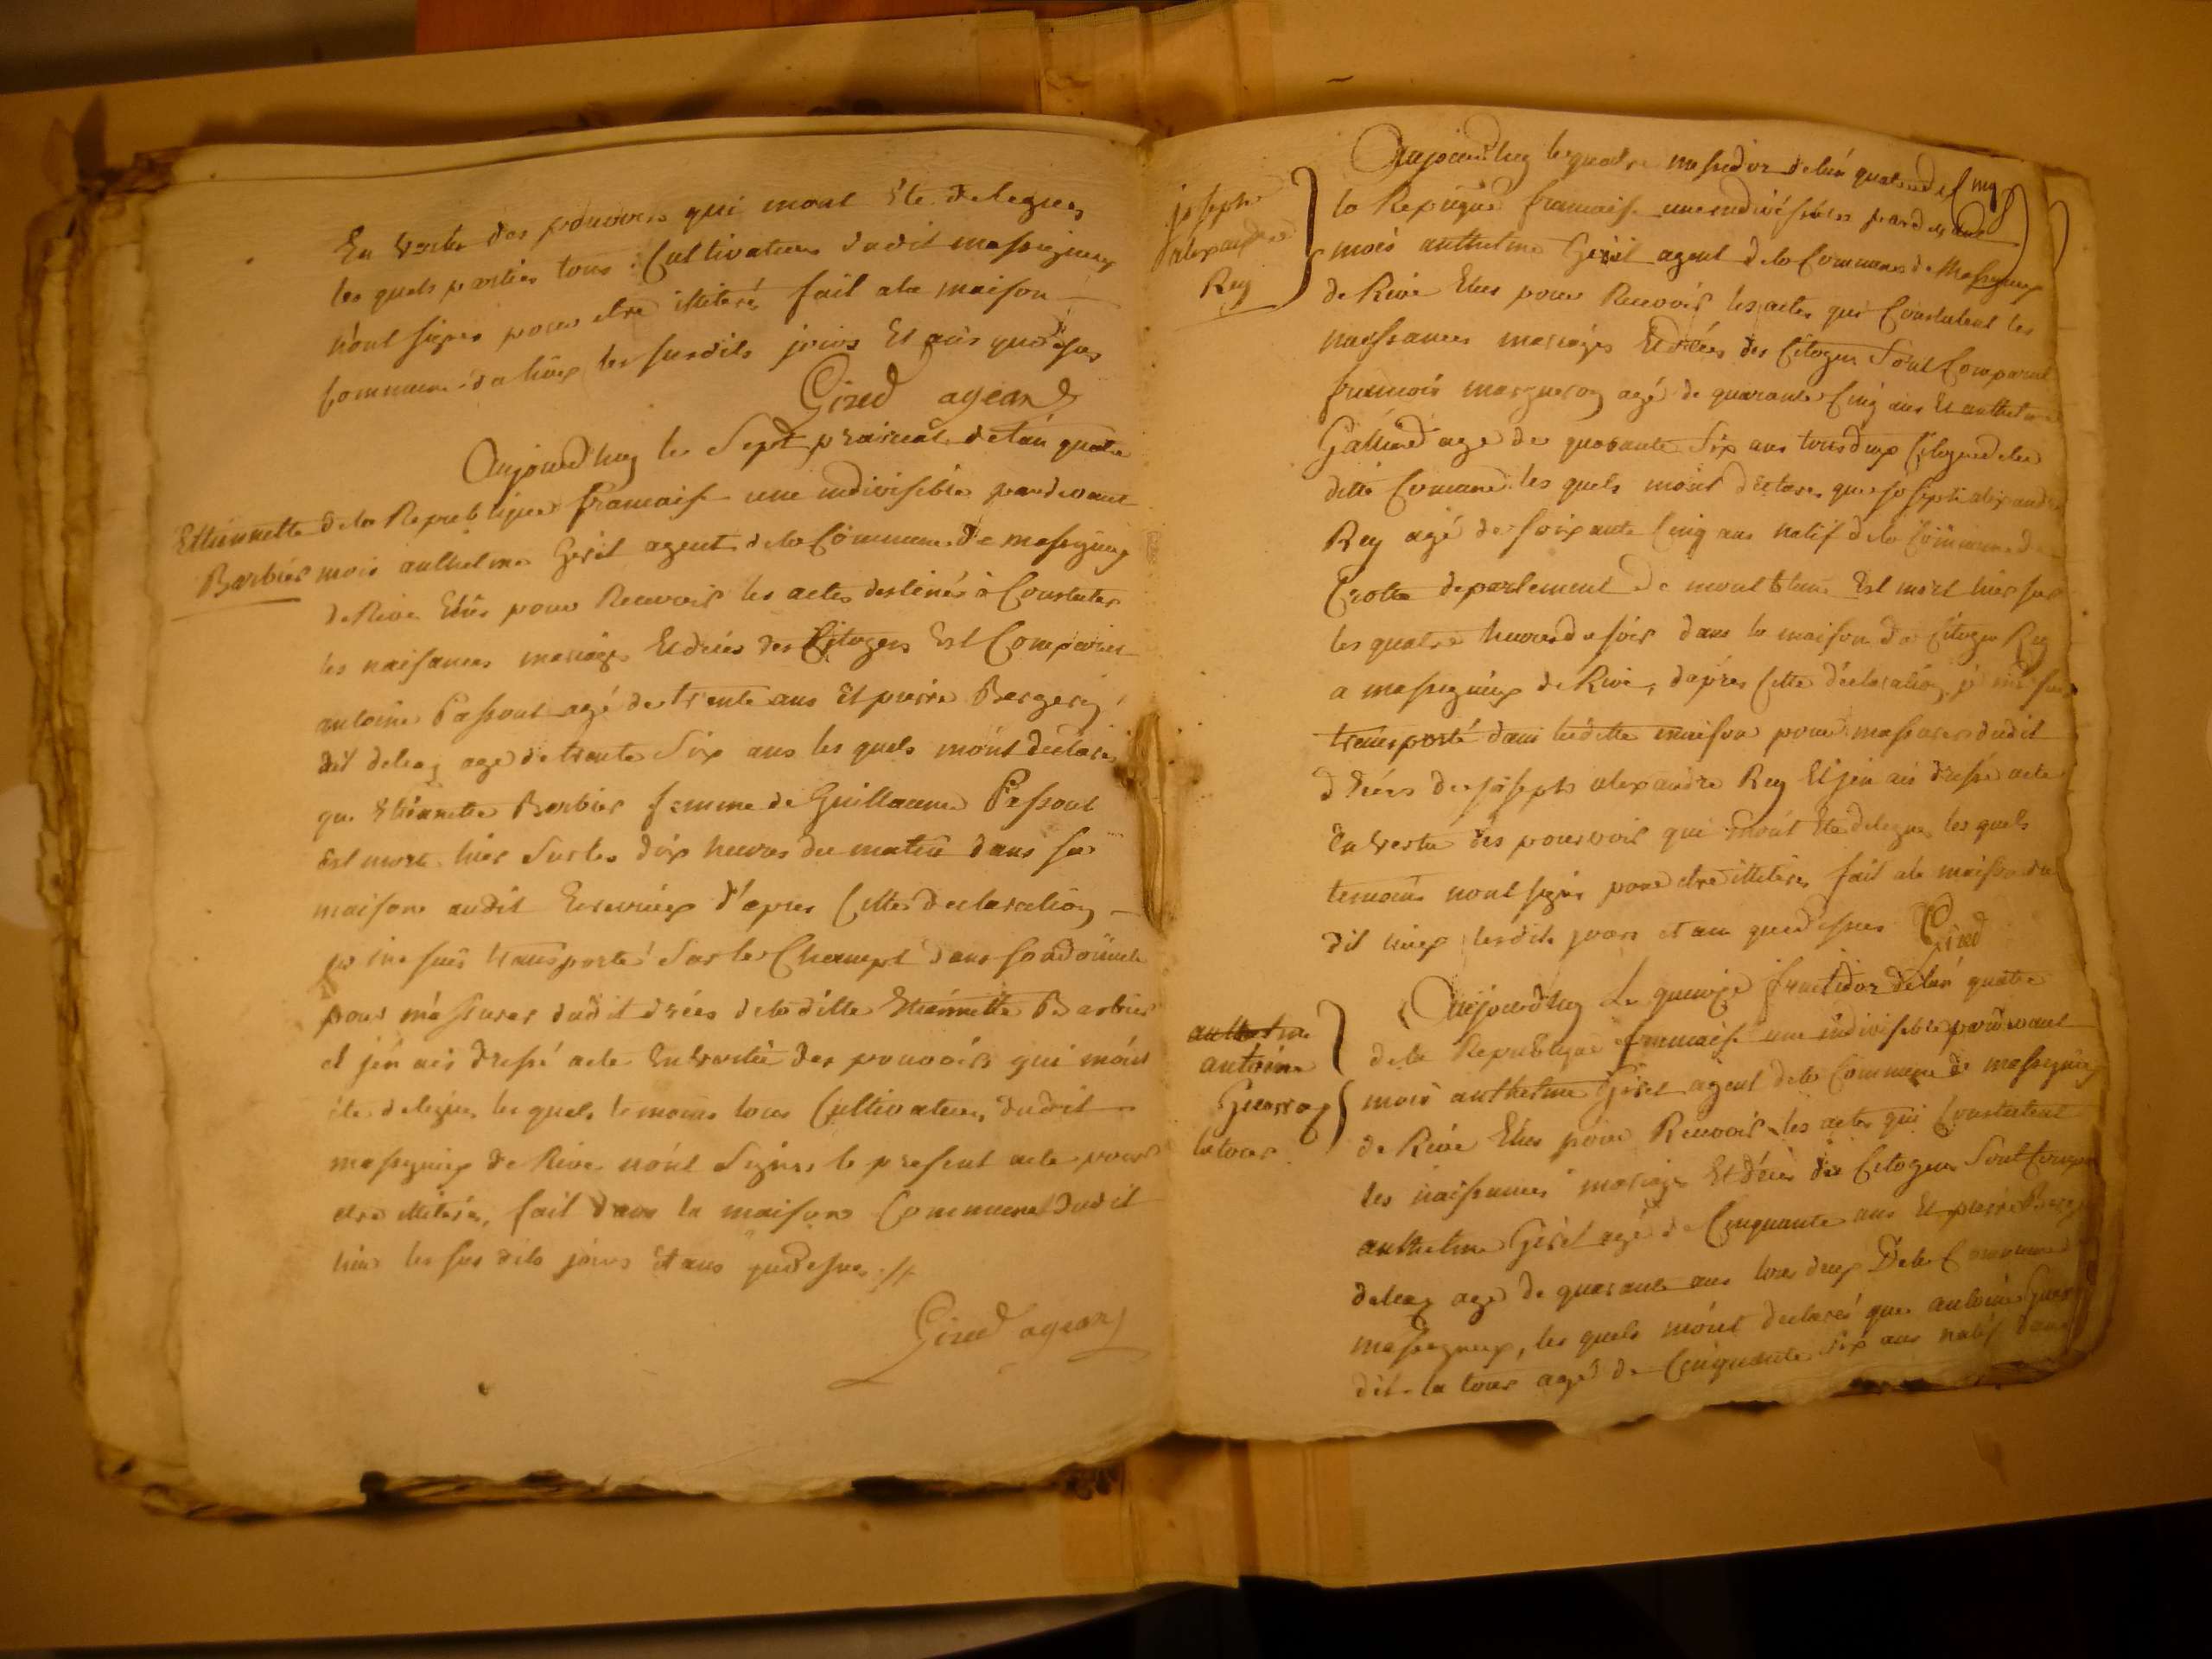 En vertu des pouvoirs qui mont été delegues
les quels parties tous Cultivateurs dudit massigneux
n'ont signes pour etre illiteré fait ala maison
Commune dalieux les susdits jours Et ans que desus
Gired agean
Aujourd'huy le Sept prairial de lan quatre
Ettiennette
Barbier
de la Republique francaise une indivisible pardevant
mois anthelme Girel agent de la Commune de massigneux
de Rive Elus pour Recevoir les actes destinés à Constater
les naisances mariages Et déces des Citogens Est Comparut
antoine Passout agé de trente ans Et pierre Bergeri
dit deleaz age de trente Six ans les quels m'ont declaré
que Etiennette Barbier femme de Guillaume Passout
Est morte hier Sur les dix heures du matin dans sa
maison audit d'apres Cette declaration
je me suis transporté Sur le Champt dans son domicile
pour m'assurer dudit déces de la ditte Etiennette Barbier
et j'en ais dressé acte En vertu des pouvoirs qui m'ont
été delegues les quels temoins tous Cultivateurs dudit
massigneux de Rive n'ont Signes le present acte pour
etre illiterés, fait dans la maison Commune dudit
lieu les sus dits jours Et ans que desus
Gired agean
joseph
alexandre
Rey
Aujourd'huy le quatre messidor de lan quatre de
la Republique francaise une indivisible pardevant
mois anthelme Girel agent de la Commune de Massigneux
de Rive Elus pour Recevoir les actes qui Constatent les
naissances mariages Et déces des Citogens Sont Comparut
francois margueron agé de quarante Cinq ans Et anthelme
Galliard age de quarante Six ans tous deux Citogens de la
ditte Comune les quels m'ont declare que joseph alexandre
Rey agé de soixante Cinq ans natif de la Commune de
Crotte departement de mont blanc Est mort hier sur
les quatre heures du soir dans la maison du Citogen Rey
a massigneux de Rive, d'apres Cette déclaration je me suis
transporté dans laditte maison pour massurer dudit
déces de joseph alexandre Rey Et jen ais dressé acte
En vertu des pouvoir qui m'ont été delegues les quels
temoins nont signes pour etre illiteres fait ala maison du
dit lieux lesdits jours et an que desus Gired
anthelme
antoine
Guerraz
latour
Aujourd'huy Le quinze fructidor de lan quatre
de la Republique francaise une indivisible pardevant
mois anthelme Girel agent de la Commune de massigneux
de Rive Elus pour Recevoir les actes qui Constatent
les naissances mariages Et déces des Citogens Sont Compar
anthelme Girel agé de Cinquante ans Et pierre
deleaz age de quarante ans tous deux De la Commune de
massigneux, les quels m'ont declaré que antoine
dit la tour agé de Cinquante Six ans natif dans